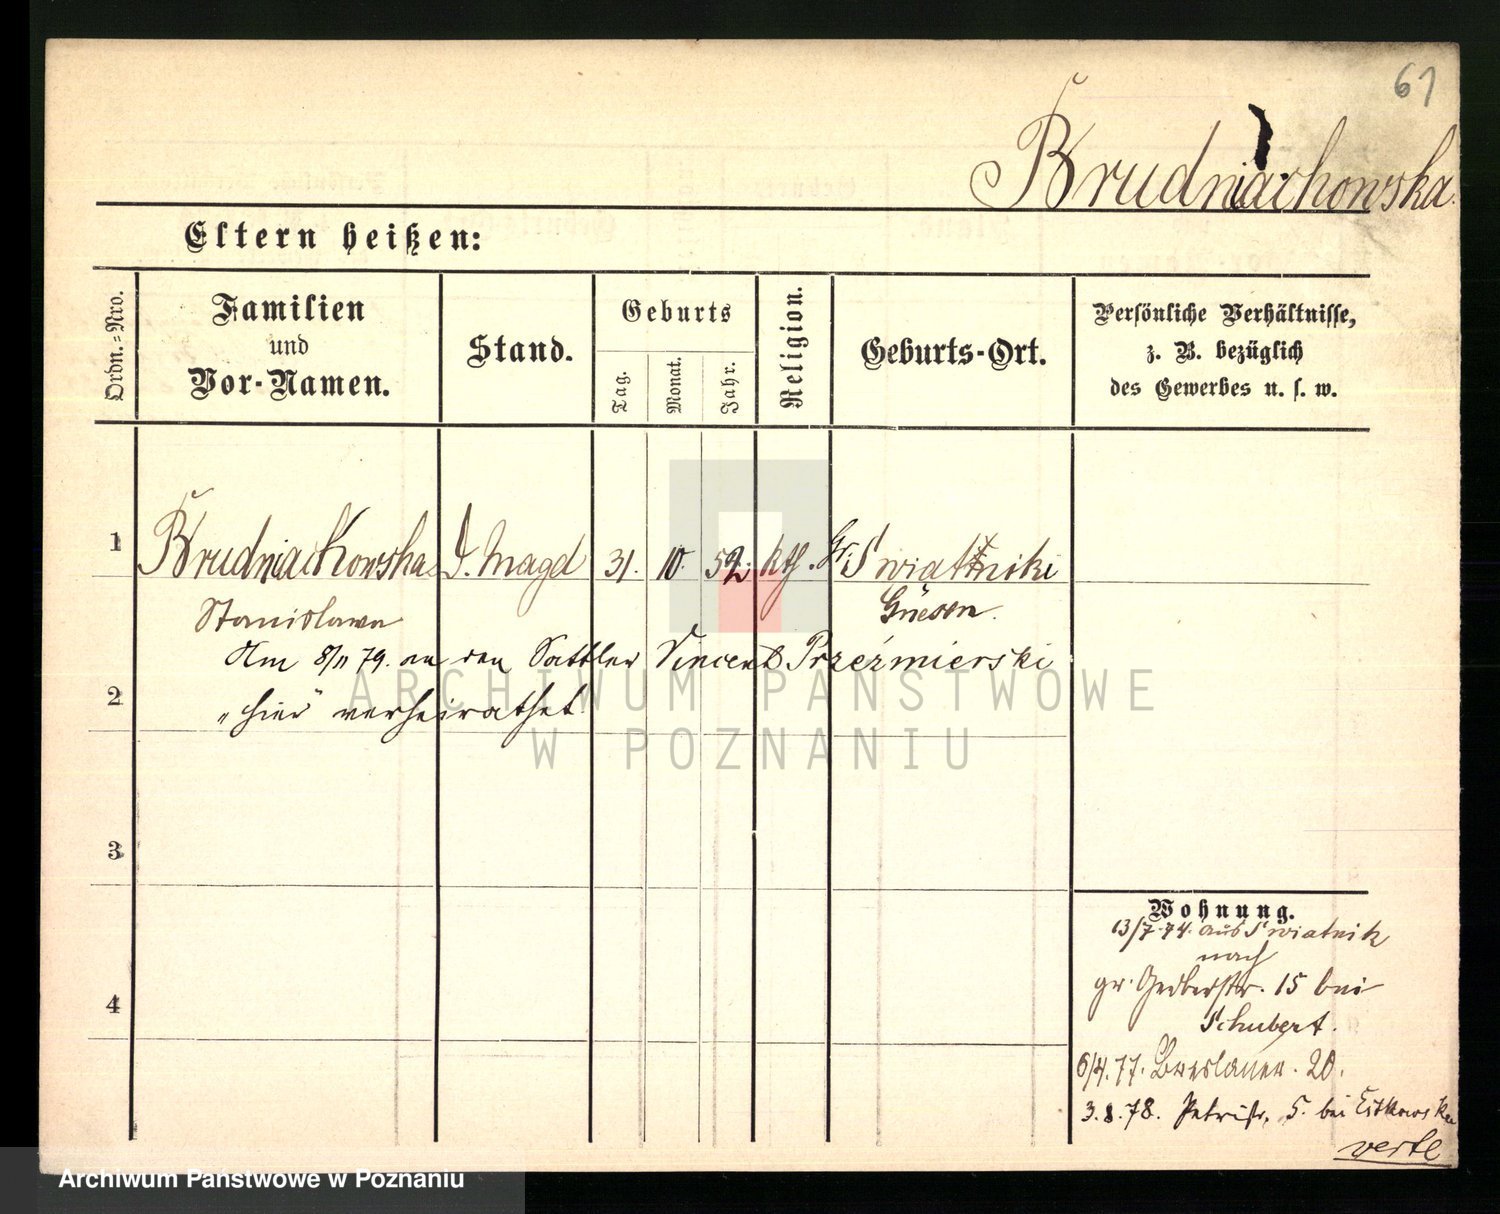 61
Brudniachowska.
Eltern heißen:
Ordn.=Nro.
Familien
und
Vor-Namen.
Stand.
Geburts
Tag.
Monat.
Jahr.
Religion.
Geburts-Ort.
Persönliche Verhältnisse,
z. B. bezüglich
des Gewerbes u. s. w.
1 Brudniachowska Magd 31. 10. 52. kth. Gr. Swiatniki
Stanislawa Gnesen.
Am 8/11 79. an den Sattler Vincent Przeźmierski
2 "hier" verheirathet.
3
4
Wohnung.
13/7.74. aus Swiatnik
nach
gr. Gerberstr. 15 bei
Schubert.
6/4.77. Breslauer. 20.
3.8.78. Petristr. 5. bei
verte
ARCHIWUM PAŃSTWOWE
W POZNANIU
Archiwum Państwowe w Poznaniu